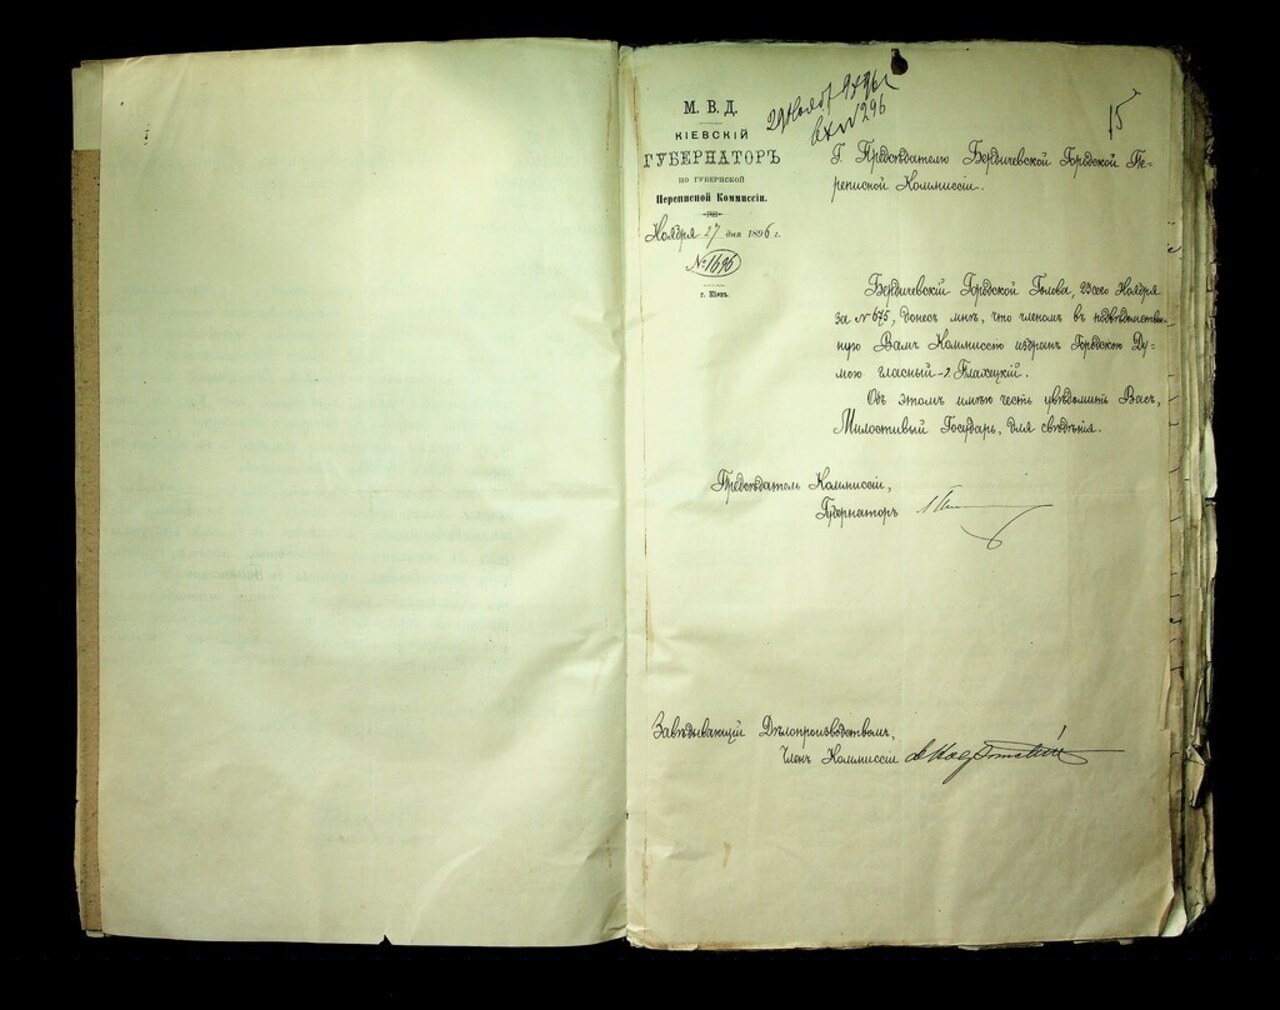 М. В. Д.
КІЕВСКІЙ
ГУБЕРНАТОРЪ
по губернской
Переписной Коммиссіи.
Ноября 27 дня 1896 г.
№ 1696
г. Кіевъ.
29 Нояб 96 г.
вх № 296
15
Г. Предсѣдателю Бердичевской Городской Пе=
реписной Коммиссіи.
Бердичевскій Городской Голова, 23 сего Ноября
за № 675, донесъ мнѣ, что членомъ въ подвѣдомствен-
ную Вамъ Коммиссію избранъ Городскою Ду=
мою гласный г.
Объ этомъ имѣю честь увѣдомить Васъ,
Милостивый Государь, для свѣдѣнія.
Предсѣдатель Коммиссіи,
Губернаторъ
Завѣдывающій Дѣлопроизводствомъ,
Членъ Коммиссіи